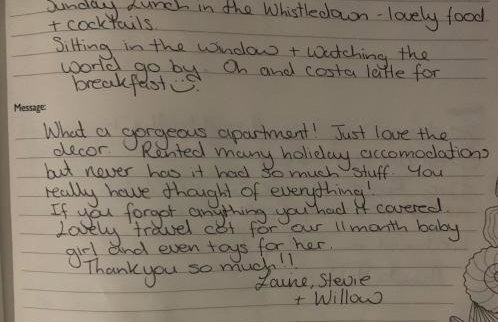 Sunday Lunch in the Whistledown - lovely food
+ cocktails.
Sitting in the window + watching the
world go by. Oh and costa latte for
breakfast
Message:
What a gorgeous apartment! Just love the
decor. Rented many holiday accomodations
but never has it had so much stuff. You
really have thought of everything!
If you forgot anything you had it covered.
Lovely travel cot for our 11 month baby
girl and even toys for her.
Thankyou so much!!
Stevie
+ Willow